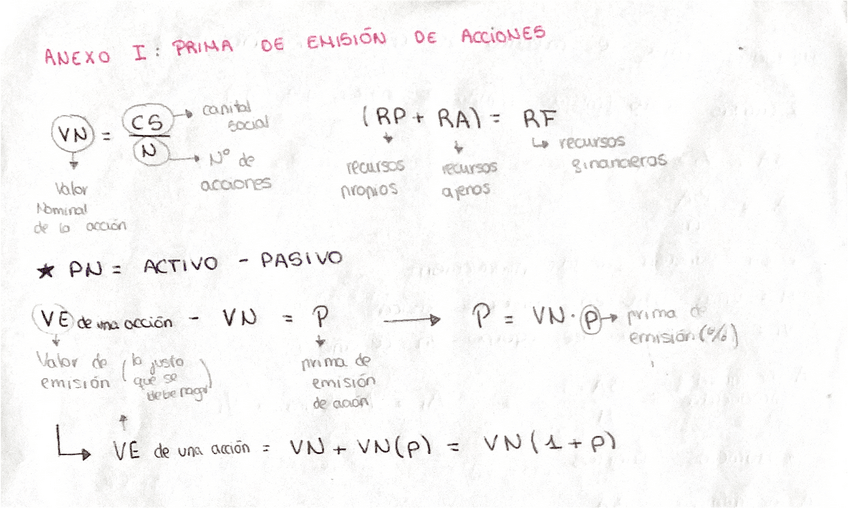 ANEXO I: PRIMA DE EMISIÓN DE ACCIONES
VN = CS / N
capital social
Nº de acciones
Valor Nominal de la acción
(RP + RA) = RF
recursos propios
recursos ajenos
recursos financieros
★ PN = ACTIVO - PASIVO
VE de una acción - VN = P → P = VN · p → prima de emisión (%)
Valor de emisión (lo justo que se debe pagar)
prima de emisión de acción
VE de una acción = VN + VN(p) = VN(1 + p)